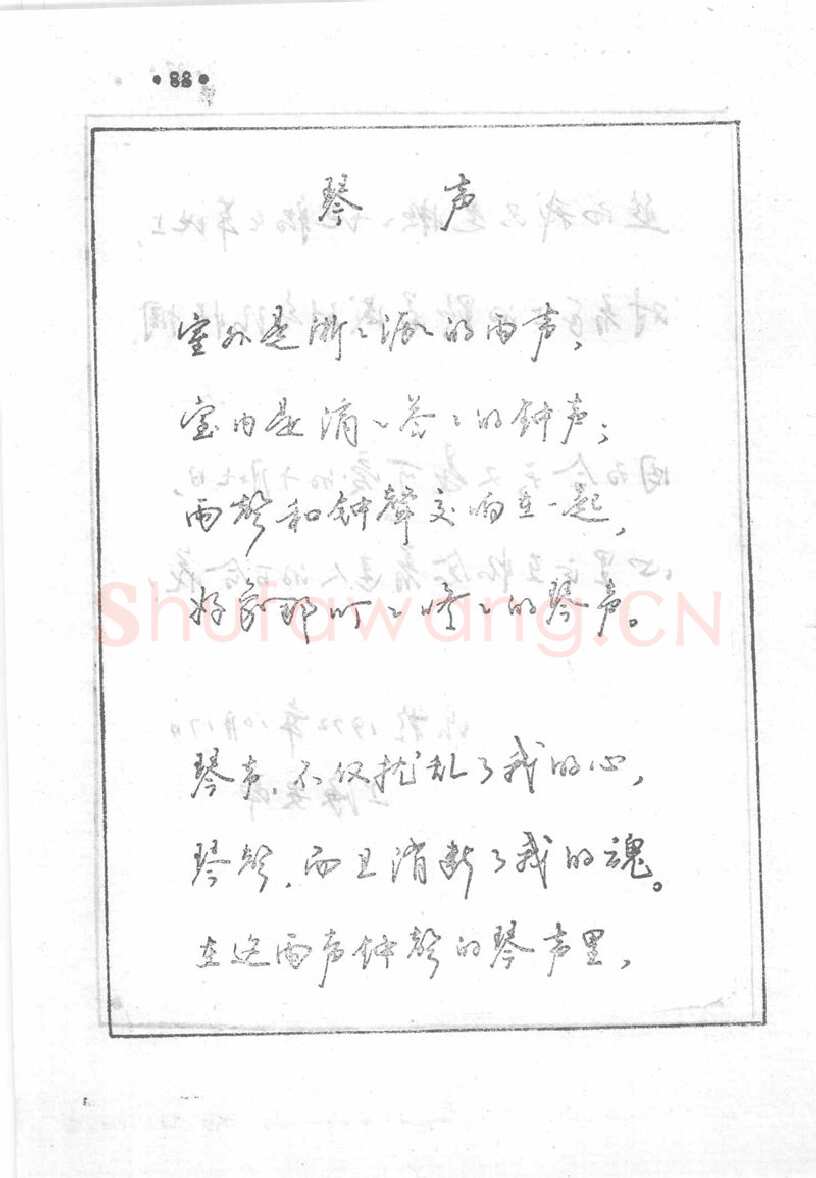 ·88·
琴声
室外是淅々沥々的雨声，
室内是滴々答々的钟声；
雨声和钟聲交响在一起，
好象那叮々咚々的琴声。
琴声，不仅扰乱了我的心，
琴声，而且消断了我的魂。
在这雨声钟声的琴声里，
Shufawang.CN